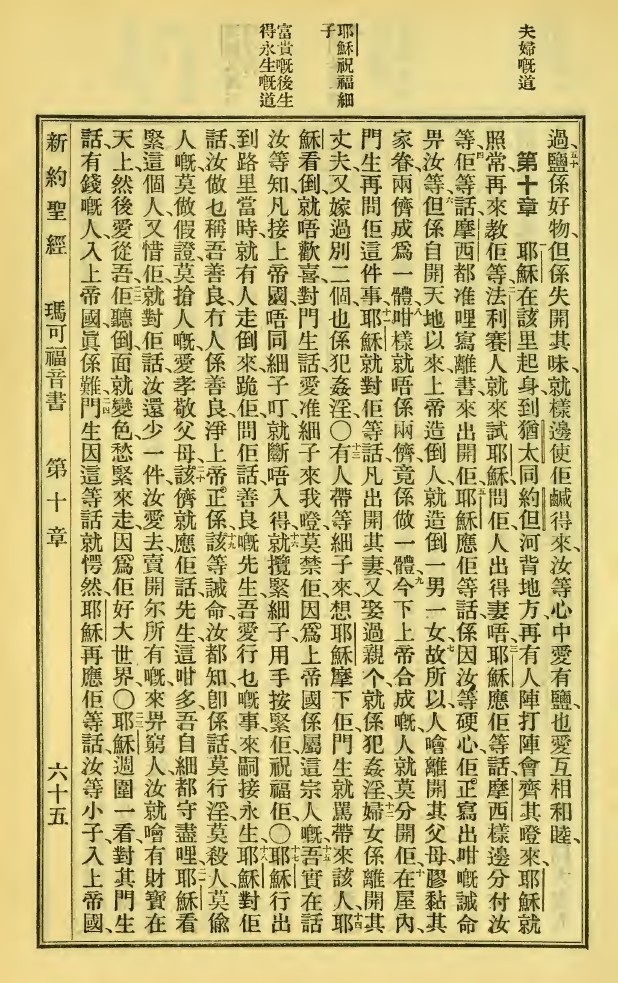 夫婦嘅道
耶穌祝福細
子
富貴嘅後生
得永生嘅道
五十
過、鹽係好物、但係失開其味、就樣邊使佢鹹得來、汝等心中愛有鹽、也愛互相和睦、
第十章 一耶穌在該里起身、到猶太同約但河背地方、再有人陣打陣會齊其嶝來、耶穌就
照常再來教佢等、二法利賽人就來試耶穌、問佢、人出得妻唔、三耶穌應佢等話、摩西樣邊分付汝
等、四佢等話、摩西都准哩寫離書來出開佢、五耶穌應佢等話、係因汝等硬心、佢正寫出咁嘅誡命
畀汝等、六但係自開天地以來、上帝造倒人、就造倒一男一女、七故所以人噲離開其父母、膠黏其
家眷、兩儕成爲一體、八咁樣就唔係兩儕、竟係做一體、九今下上帝合成嘅、人就莫分開佢、十在屋內、
門生再問佢這件事、十一耶穌就對佢等話、凡出開其妻、又娶過親个、就係犯姦淫、十二婦女係離開其
丈夫、又嫁過別二個、也係犯姦淫〇十三有人帶等細子來、想耶穌摩下佢、門生就罵帶來該人、十四耶
穌看倒就唔歡喜、對門生話、愛准細子來我嶝、莫禁佢、因爲上帝國係屬這宗人嘅、十五吾實在話
汝等知、凡接上帝國、唔同細子叮、就斷唔入得、十六就攬緊細子、用手按緊佢、祝福佢〇十七耶穌行出
到路里當時、就有人走倒來、跪佢問佢話、善良嘅先生、吾愛行乜嘅事來嗣接永生、十八耶穌對佢
話、汝做乜稱吾善良、冇人係善良、淨上帝正係、十九該等誡命汝都知、卽係話、莫行淫、莫殺人、莫偸
人嘅、莫做假證、莫搶人嘅、愛孝敬父母、二十該儕就應佢話、先生、這咁多吾自細都守盡哩、二一耶穌看
緊這個人、又惜佢、就對佢話、汝還少一件、汝愛去賣開尔所有嘅來畀窮人、汝就噲有財寶在
天上、然後愛從吾、二二佢聽倒、面就變色、愁緊來走、因爲佢好大世界〇二三耶穌週圍一看、對其門生
話、有錢嘅人、入上帝國眞係難、二四門生因這等話就愕然、耶穌再應佢等話、汝等小子、入上帝國、
新約聖經 瑪可福音書 第十章 六十五